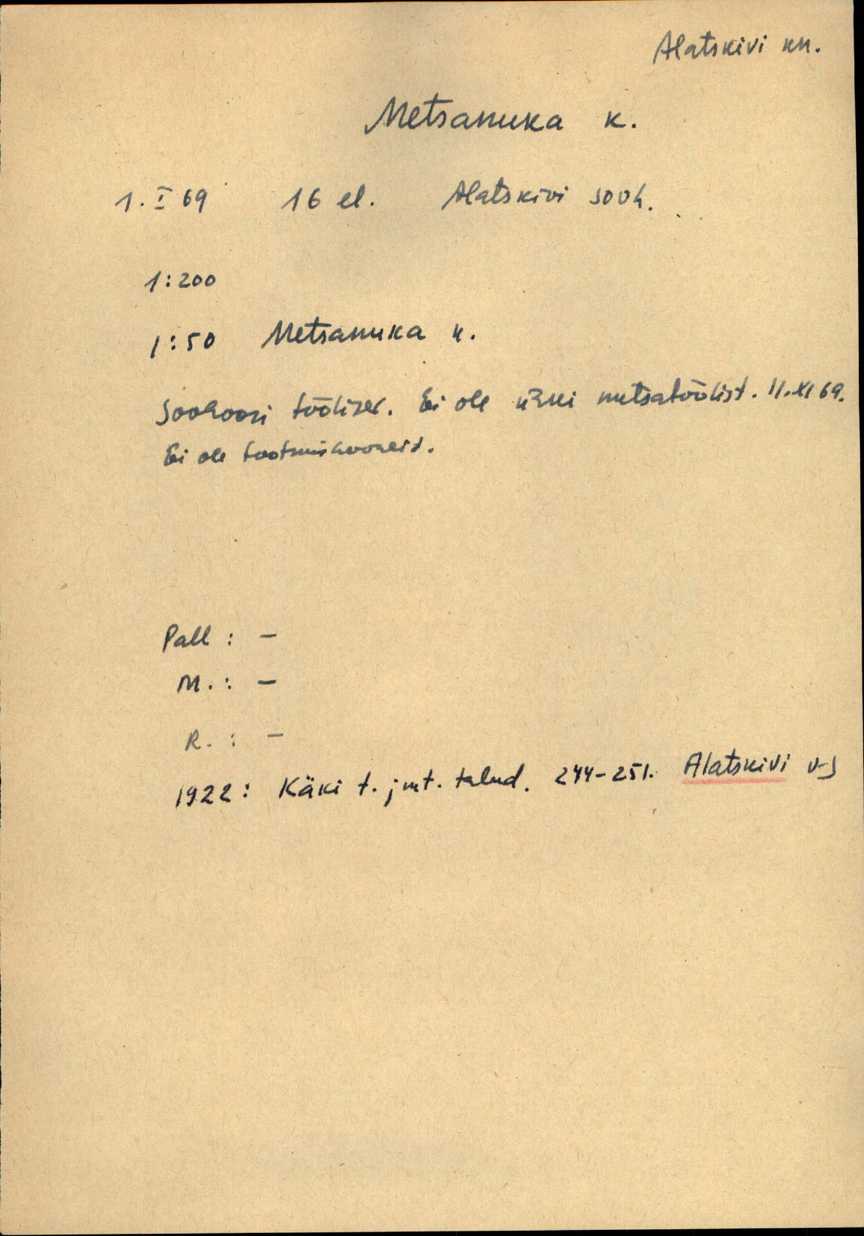 Alatskivi kn.
Metsanuka k.
1. I 69 16 el. Alatskivi sooh.
1:200
1:50 Metsanuka k.
Soohoosi töölised. Ei ole ühki metsatöölist. 11. XI 69.
Ei ole tootmishooneid.
Pall : –
M. : –
R. : –
1922: Käki t. jmt. talud. 244-251. Alatskivi v-s